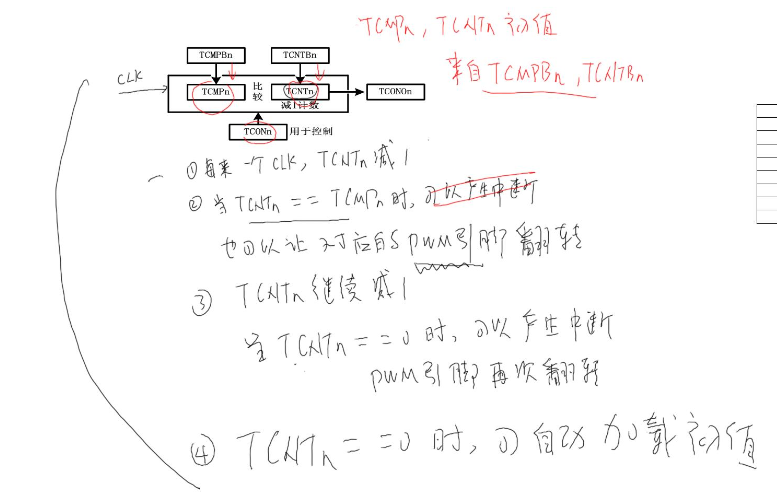 TCMPn, TCNTn 初值
来自 TCMPBn, TCNTBn
TCMPBn TCNTBn
CLK
TCMPn 比较 TCNTn TCONOn
减1计数
TCONn 用于控制
① 每来一个CLK, TCNTn 减1
② 当 TCNTn == TCMPn 时, 可以产生中断
也可以让对应的 PWM引脚翻转
③ TCNTn 继续减1
当 TCNTn == 0 时, 可以产生中断
PWM引脚再次翻转
④ TCNTn == 0 时, 可自动加载初值